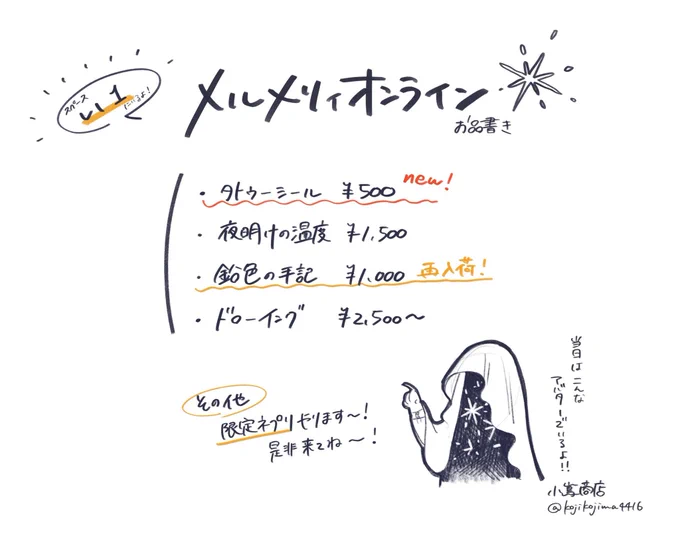 スペース
い1
にいるよ!
メルメリィオンライン
お品書き
・タトゥーシール ¥500 new!
・夜明けの温度 ¥1,500
・鉛色の手記 ¥1,000 再入荷!
・ドローイング ¥2,500〜
その他
限定ネプリやります〜!
是非来てね〜!
当日はこんな
アバターでいるよ!!
小嶌商店
@kojikojima4416